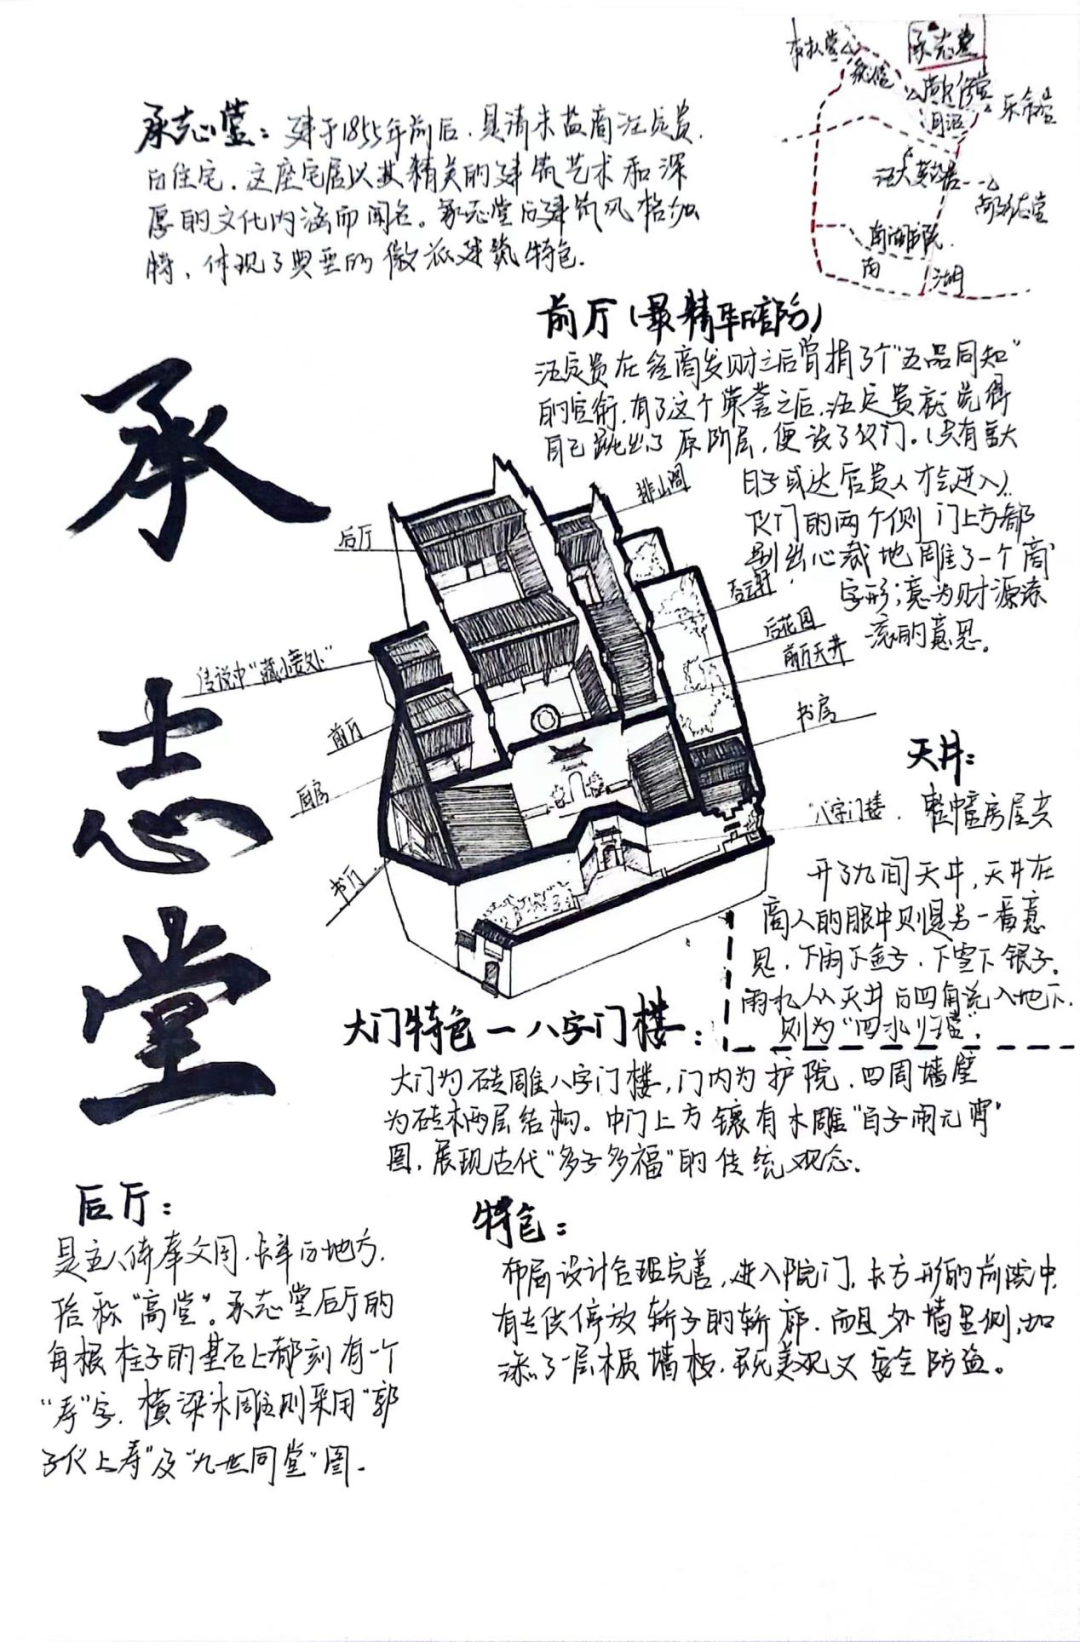 承志堂
承志堂：建于1855年前后，是清末盐商汪定贵
的住宅，这座宅居以其精美的建筑艺术和深
厚的文化内涵而闻名。承志堂的建筑风格独
特，体现了典型的徽派建筑特色.
承志堂
乐叙堂
汪大燮故居
南湖书院
南
湖
前厅（最精华的部分）
汪定贵在经商发财之后曾捐了个“五品同知”
的官衔，有了这个荣誉之后，汪定贵就觉得
自己跳出了原阶层，便设了仪门。（只有喜大
日子或达官贵人才会进入）.
仪门的两个侧门上方都
别出心裁地雕了一个商
字形；意为财源滚
滚的意思。
排山阁
后厅
后天井
后花园
前厅天井
传说中“藏小妾处”
书房
前厅
厨房
八字门楼
书厅
天井：
整幢房屋共
开了九间天井，天井在
商人的眼中则是另一番意
见，下雨下金子，下雪下银子。
雨水从天井的四角流入地下.
则为“四水归堂”.
大门特色—八字门楼：
大门为砖雕八字门楼，门内为护院，四周墙壁
为砖木两层结构。中门上方镶有木雕“百子闹元宵”
图，展现古代“多子多福”的传统观念.
后厅：
是主人侍奉父母、长辈的地方，
俗称“高堂”。承志堂后厅的
每根柱子的基石上都刻有一个
“寿”字，横梁木雕则采用“郭
子仪上寿”及“九世同堂”图.
特色：
布局设计合理完善，进入院门，长方形的前院中，
有专供停放轿子的轿廊，而且外墙里侧，加
添了一层木质墙板，既美观又安全防盗。